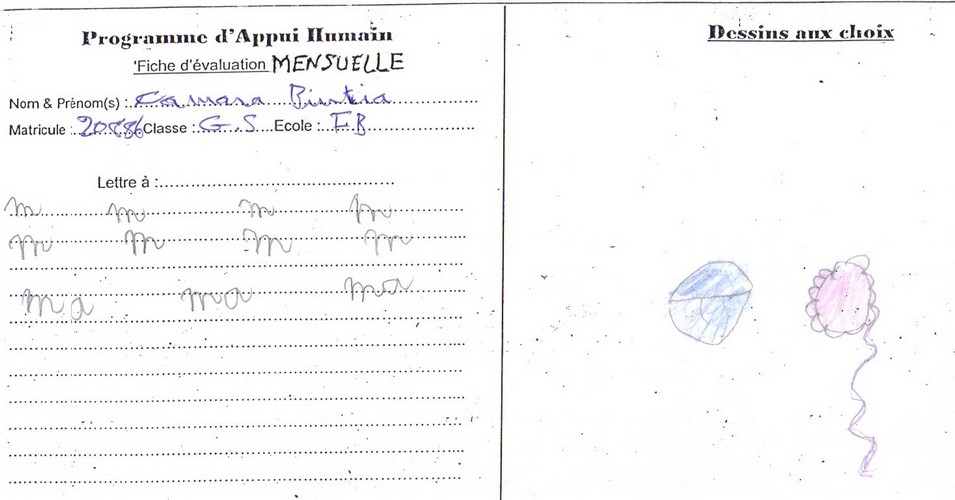 Programme d'Appui Humain
Fiche d'évaluation MENSUELLE
Nom & Prénom(s) : Camara Bintia
Matricule : 20886 Classe : G.S Ecole : I B
Lettre à :
m m m m
m m m m
ma ma ma
Dessins aux choix